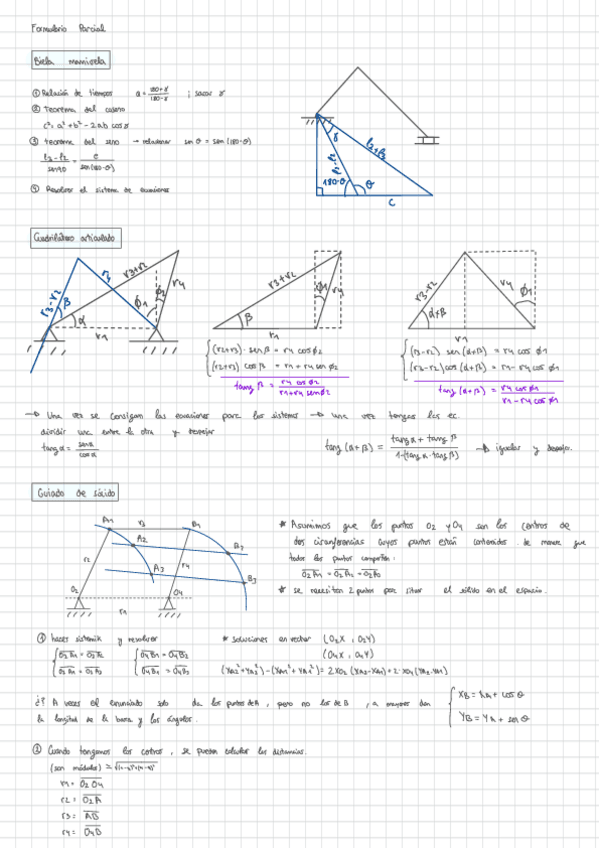 Formulario Parcial
Biela manivela
① Relación de tiempos a = 180+γ / 180-γ ; sacar γ
② Teorema del coseno
c² = a² + b² - 2ab cos γ
③ Teorema del seno → relacionar sen θ = sen (180-θ)
l3 - l2 / sen 90 = c / sen(180-θ)
④ Resolver el sistema de ecuaciones
γ
l2+l3
l3-l2
180-θ
θ
c
Cuadrilátero articulado
r3-r2
β
r4
r3+r2
α
r1
∅1
∅2
r4
r3+r2
β
r1
r4
r3-r2
α+β
r1
r4
∅1
(r2+r3) · sen β = r4 cos ∅2
(r2+r3) cos β = r1 + r4 sen ∅2
tang β = r4 cos ∅2 / r1+r4 sen ∅2
(r3-r2) sen (α+β) = r4 cos ∅1
(r3-r2) cos (α+β) = r1 - r4 cos ∅1
tang (α+β) = r4 cos ∅1 / r1 - r4 cos ∅1
→ Una vez se consigan las ecuaciones para los sistemas → una vez tengas las ec.
dividir una entre la otra y despejar
tang α = sen α / cos α
tang (α+β) = tang α + tang β / 1-(tang α · tang β) → igualar y despejo.
Guiado de sólido
A1
r3
B1
A2
B2
r2
r4
A3
B3
O2
O4
r1
* Asumimos que los puntos O2 y O4 son los centros de
dos circunferencias cuyos puntos están contenidos de manera que
todos los puntos cumplan:
O2A1 = O2A2 = O2A3
* se necesitan 2 puntos para situar el sólido en el espacio.
① hacer sistema y resolver
O2A1 = O2A2
O2A1 = O2A3
O4B1 = O4B2
O4B1 = O4B3
* soluciones en vector (O2X , O2Y)
(O4X , O4Y)
(XA2² + YA2²) - (XA1² + YA1²) = 2 XO2 (XA2-XA1) + 2· YO2 (YA2-YA1)
¿? A veces el enunciado solo da los puntos de A , pero no los de B , a mayores dan
la longitud de la barra y los ángulos.
XB = XA + cos θ
YB = YA + sen θ
② Cuando tengamos los centros , se pueden calcular las distancias.
(son módulos)
r1 = O2O4
r2 = O2A
r3 = AB
r4 = O4B